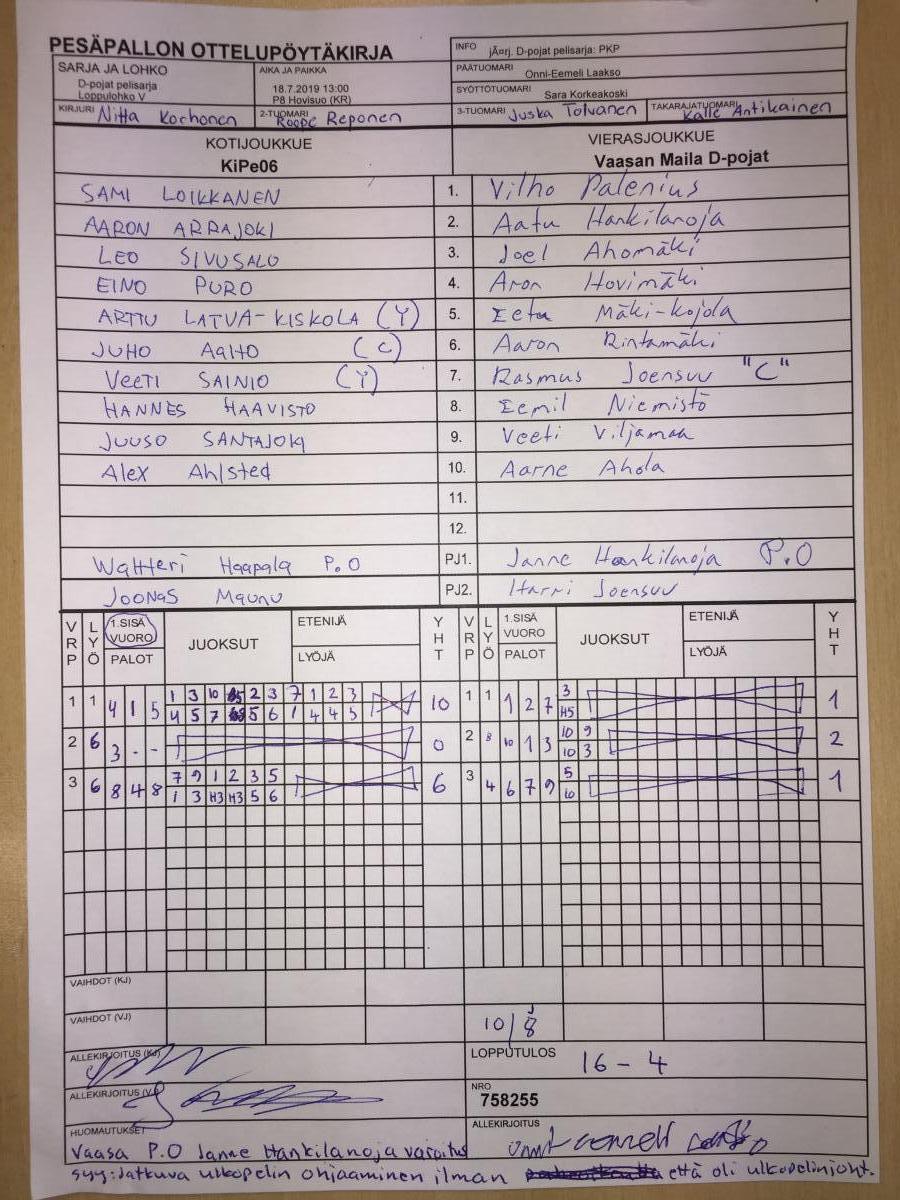 PESÄPALLON OTTELUPÖYTÄKIRJA
INFO jÃ¤rj. D-pojat pelisarja: PKP
SARJA JA LOHKO
D-pojat pelisarja
Loppulohko V
AIKA JA PAIKKA
18.7.2019 13:00
P8 Hovisuo (KR)
PÄÄTUOMARI Onni-Eemeli Laakso
SYÖTTÖTUOMARI Sara Korkeakoski
KIRJURI Niita Korhonen
2-TUOMARI Roope Reponen
3-TUOMARI Juska Tolvanen
TAKARAJATUOMARI Kalle Antikainen
KOTIJOUKKUE
KiPe06
VIERASJOUKKUE
Vaasan Maila D-pojat
SAMI LOIKKANEN 1. Vilho Palenius
AARON ARRAJOKI 2. Aatu Hankilanoja
LEO SIVUSALO 3. Joel Ahomäki
EINO PURO 4. Aron Hovimäki
ARTTU LATVA-KISKOLA (Y) 5. Eetu Mäki-Kojola
JUHO AALTO (C) 6. Aaron Rintamäki
VEETI SAINIO (Y) 7. Rasmus Joensuu "C"
HANNES HAAVISTO 8. Eemil Niemistö
JUUSO SANTAJOKI 9. Veeti Viljamaa
Alex Ahlsted 10. Aarne Ahola
11.
12.
Waltteri Haapala P.O PJ1. Janne Hankilanoja P.O
JOONAS Maunu PJ2. Harri Joensuu
VRP LYÖ 1.SISÄ VUORO PALOT JUOKSUT ETENIJÄ LYÖJÄ YHT VRP LYÖ 1.SISÄ VUORO PALOT JUOKSUT ETENIJÄ LYÖJÄ YHT
1 1 4 1 5 1 3 10 2 3 7 1 2 3 10 1 1 1 2 7 3 1
4 5 7 5 6 1 4 4 5 H5
2 6 3 - - 0 2 8 10 1 3 10 9 2
10 3
3 6 8 4 8 7 9 1 2 3 5 6 3 4 6 7 9 5 1
1 3 H3 H3 5 6 10
VAIHDOT (KJ)
VAIHDOT (VJ) 10/8 J
ALLEKIRJOITUS (KJ)
LOPPUTULOS 16 - 4
ALLEKIRJOITUS (VJ)
NRO
758255
HUOMAUTUKSET
ALLEKIRJOITUS
Vaasa P.O Janne Hankilanoja varoitus
syy: Jatkuva ulkopelin ohjaaminen ilman että oli ulkopelinjoht.